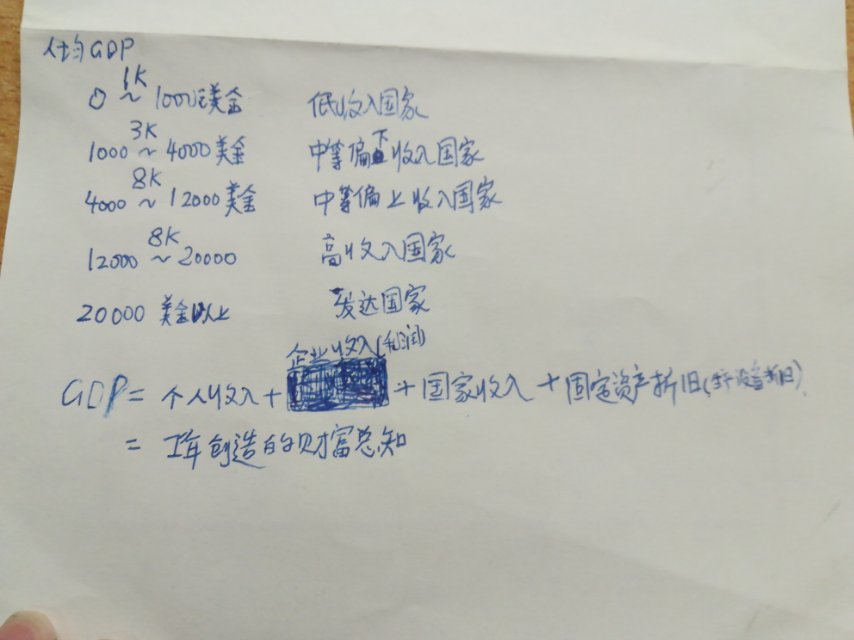 人均GDP
1K
0 ~ 1000美金 低收入国家
3K
1000 ~ 4000美金 中等偏下收入国家
8K
4000 ~ 12000美金 中等偏上收入国家
8K
12000 ~ 20000 高收入国家
20000 美金以上 发达国家
企业收入(利润)
GDP = 个人收入 + + 国家收入 + 固定资产折旧(设备折旧)
= 1年创造的财富总知